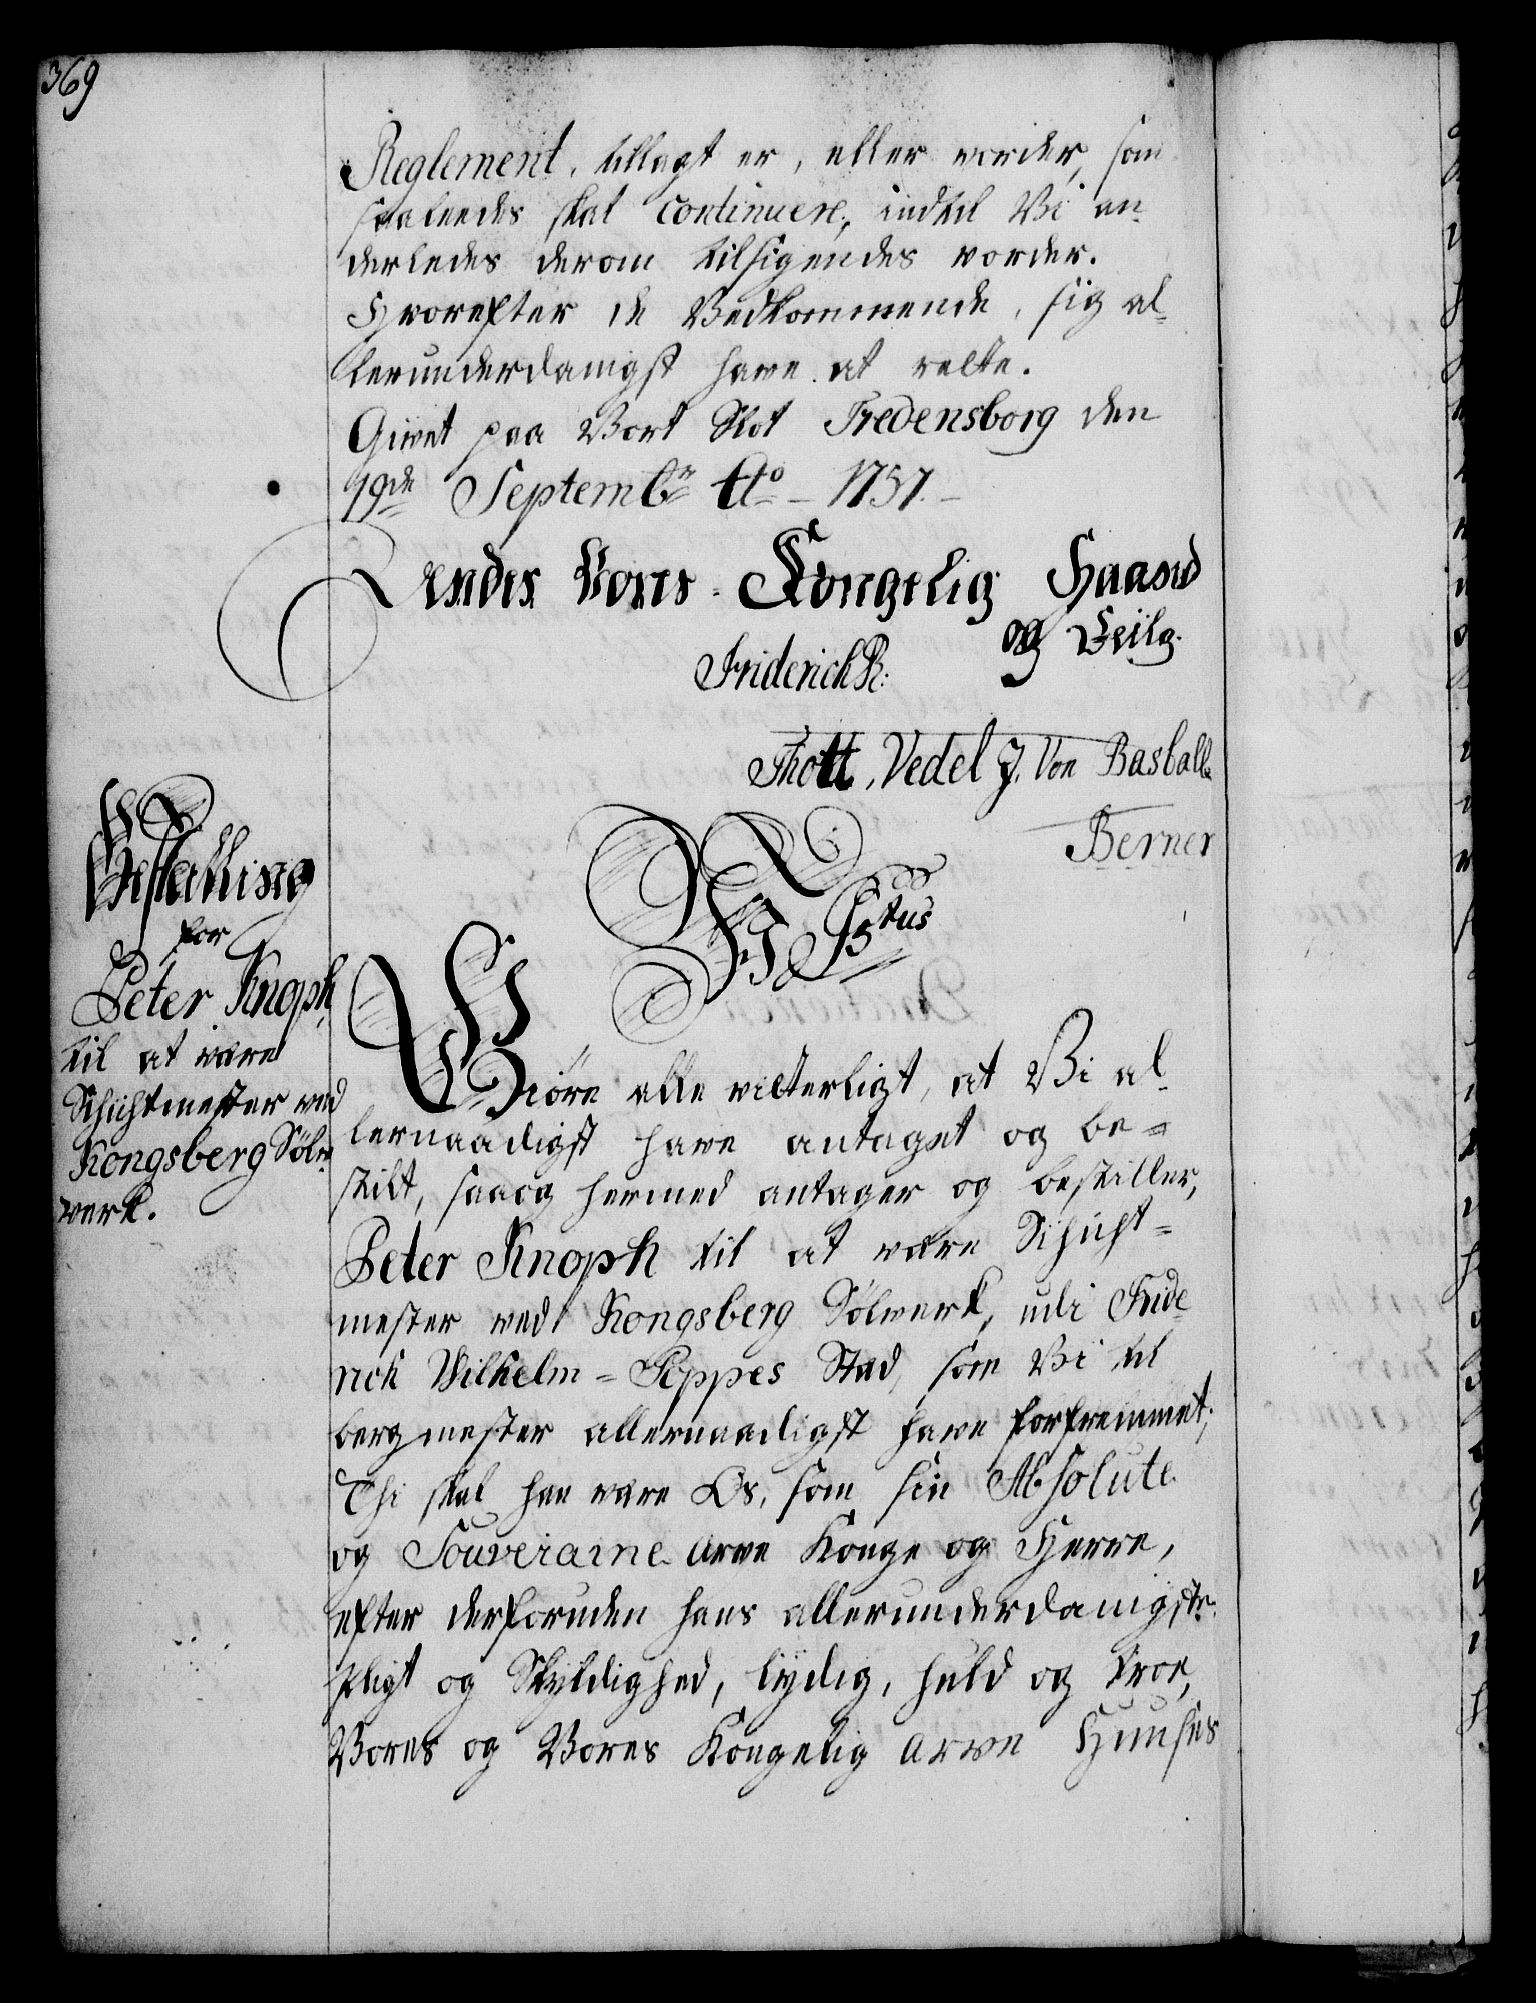 369
Reglement, tillagt er, eller vorder, som
saaledes skal continuere, indtil Vi an¬
derledes derom tilsigendes vorder.
Hvorefter de Vedkommende, sig al¬
lerunderdanigst have at rette.
Givet paa Vort Slot Fredensborg den
19de Septembr Ao – 1757. –
Under Vores Kongelig Haand
og Seilg.
Friderich R:
Thott, Vedel J. Von Basballe
Berner
Bestalling
for
Peter Knoph,
til at være
Schichtmester ved
Kongsberg Sölv¬
verk.
F 5tus
Giöre alle vitterligt, at Vi al¬
lernaadigst have antaget og be=
stilt, saaog hermed antager og bestiller,
Peter Knoph til at være Schicht=
mester ved Kongsberg Sölwerk, udi Fride
rich Wilhelm = Peppes Stad, som Vi til
bergmester allernaadigst have forfremmet;
Thi skal han være Os, som sin Absolute
og Souveraine Arve Konge og Herre,
efter derforuden hans allerunderdanigste
Pligt og Skyldighed, lydig, huld og troe,
Vores og Vores Kongelig Arve Huuses